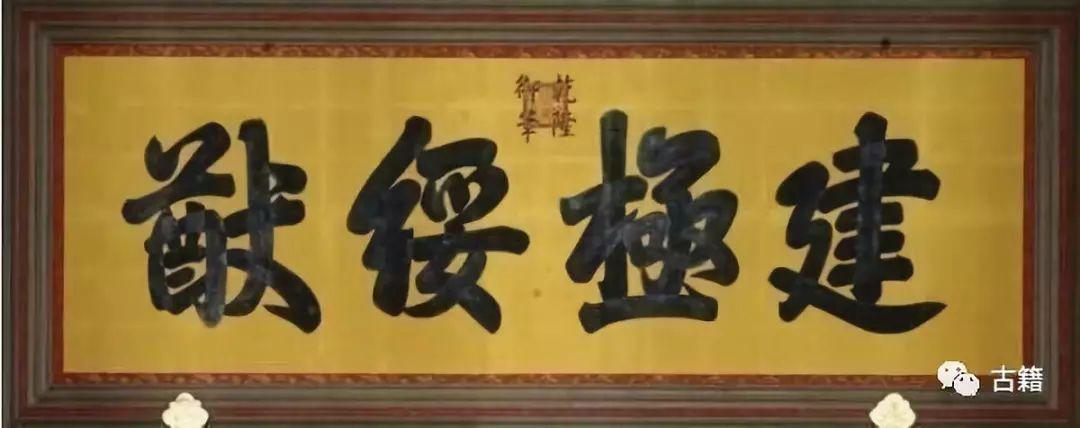 建極綏猷
乾隆
御筆
古籍